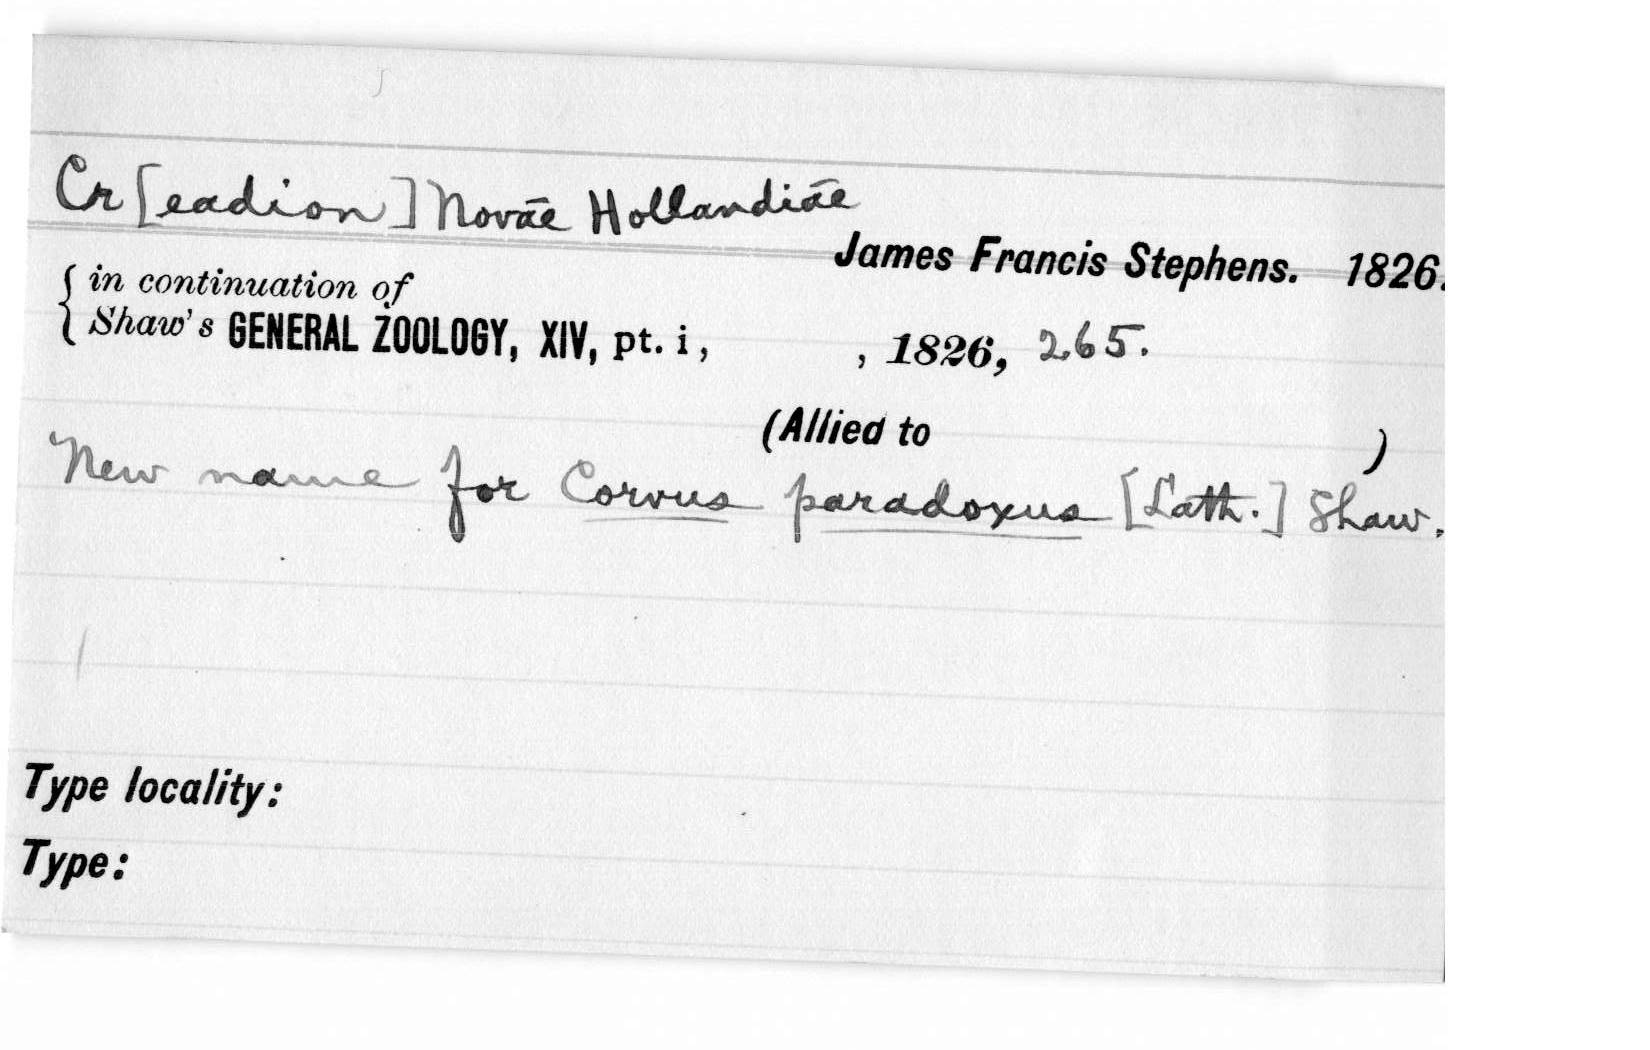 Cr[eadion] Novāē Hollandiāē
James Francis Stephens. 1826.
{ in continuation of
Shaw's GENERAL ZOOLOGY, XIV, pt. i, , 1826, 265.
(Allied to )
New name for Corvus paradoxus [Lath.] Shaw.
Type locality:
Type: